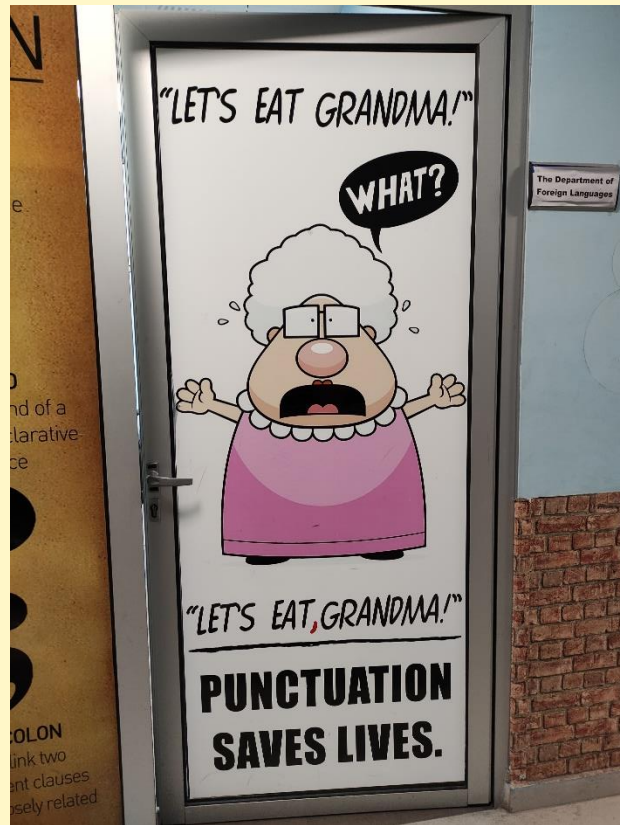 N
e
nd of a
larative
ce
OLON
link two
ent clauses
osely related
"LET'S EAT GRANDMA!"
WHAT?
"LET'S EAT, GRANDMA!"
PUNCTUATION
SAVES LIVES.
The Department of
Foreign Languages